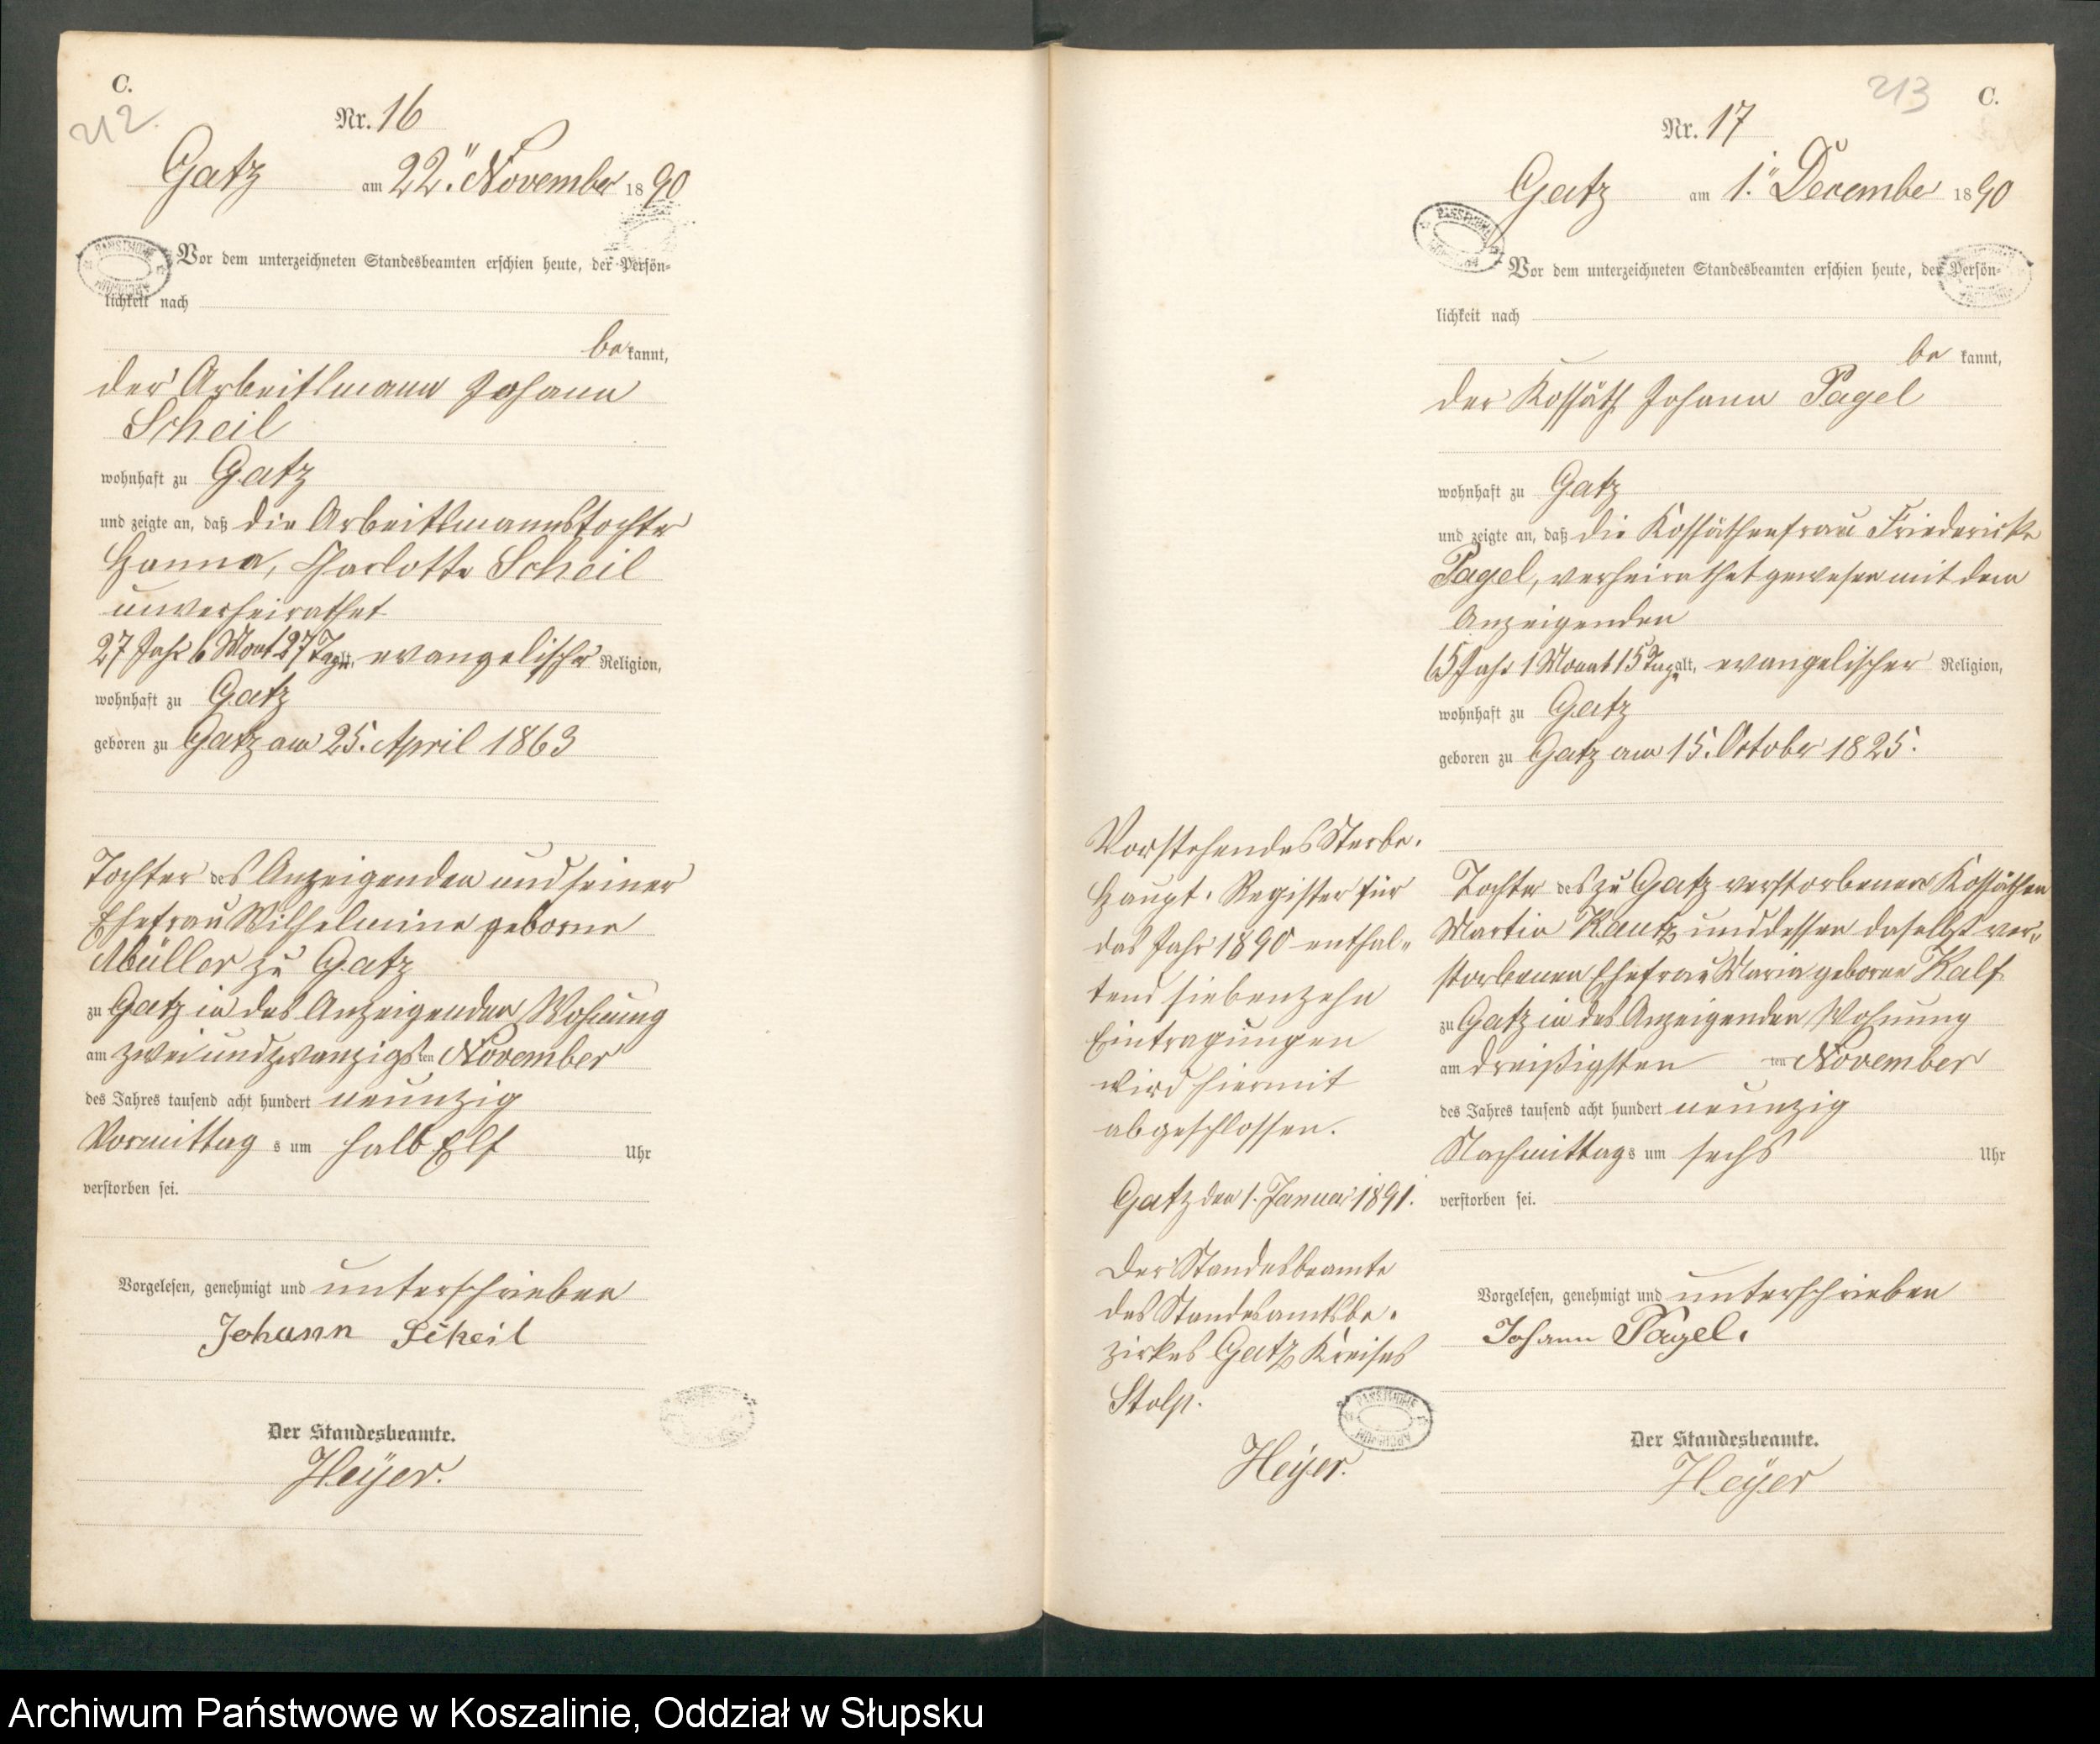 C.
212.
Nr. 16
Gatz am 22ten November 1890
Vor dem unterzeichneten Standesbeamten erschien heute, der Persön=
lichkeit nach
be kannt,
der Arbeitsmann Johann
Scheil
wohnhaft zu Gatz
und zeigte an, daß die Arbeitsmannstochter
Hanna, Charlotte Scheil
unverheirathet
27 Jahr 6 Monat 27 Tage alt, evangelischer Religion,
wohnhaft zu Gatz
geboren zu Gatz am 25. April 1863
Tochter des Anzeigenden und seiner
Ehefrau Wilhelmine geborne
Müller zu Gatz
zu Gatz in des Anzeigenden Wohnung
am zweiundzwanzigsten November
des Jahres tausend acht hundert neunzig
Vormittags um halb Elf Uhr
verstorben sei.
Vorgelesen, genehmigt und unterschrieben
Johann Scheil
Der Standesbeamte.
Heÿer.
213
C.
Nr. 17
Gatz am 1ten December 1890
Vor dem unterzeichneten Standesbeamten erschien heute, der Persön=
lichkeit nach
be kannt,
der Kossäth Johann Pagel
wohnhaft zu Gatz
und zeigte an, daß die Kossäthenfrau Friedericke
Pagel, verheirathet gewesen mit dem
Anzeigenden
65 Jahr 1 Monat 15 Tage alt, evangelischer Religion,
wohnhaft zu Gatz
geboren zu Gatz am 15. October 1825.
Tochter des zu Gatz verstorbenen Kossäthen
Martin Kautz und dessen daselbst ver=
storbenen Ehefrau Maria geborne Kalf
zu Gatz in des Anzeigenden Wohnung
am dreißigsten ten November
des Jahres tausend acht hundert neunzig
Nachmittags um sechs Uhr
verstorben sei.
Vorgelesen, genehmigt und unterschrieben
Johann Pagel.
Der Standesbeamte.
Heÿer
Vorstehendes Sterbe=
Haupt=Register für
das Jahr 1890 enthal=
tend siebenzehn
Eintragungen
wird hiermit
abgeschlossen.
Gatz den 1. Januar 1891.
Der Standesbeamte
des Standesamtsbe=
zirkes Gatz Kreises
Stolp.
Heÿer.
Archiwum Państwowe w Koszalinie, Oddział w Słupsku